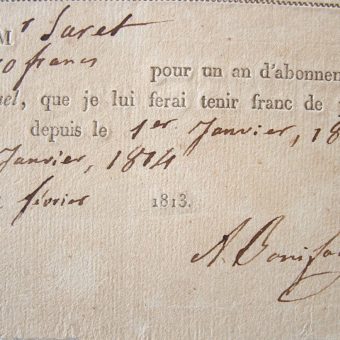 Mr Laret
0 francs pour un an d'abonnem
el, que je lui ferai tenir franc de p
depuis le 1er. Janvier, 18
Janvier, 1814
février 1813.
A. Bonifa